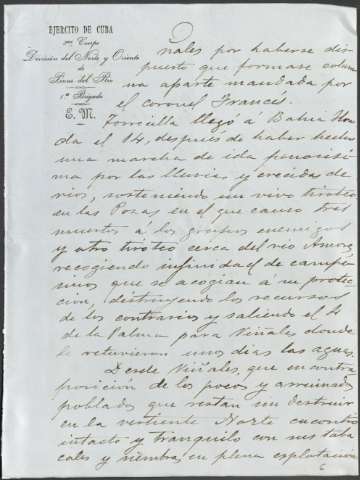 EJÉRCITO DE CUBA
Cuerpo
División del Norte y Oriente
de
Pinar del Río
1ª Brigada
E. M.
nales por haberse dis
puesto que formase colum
na aparte mandada por
el coronel Francés.
Torricilla llegó á Bahia Hon
da el 14, despues de haber hecho
una marcha de ida penosísi
ma por las lluvias y crecida de
rios, sosteniendo un vivo tiroteo
en las Pozas en el que causó tres
muertos á los grupos enemigos
y otro tiroteo cerca del rio
recogiendo infinidad de campesi
nos que se acogian á su protec
cion, destruyendo los recursos
de los contrarios y saliendo el
de la Palma para Viñales donde
le retuvieron unos dias las aguas.
Desde Viñales, que en contra
posicion de los pocos y arruinados
poblados que restan sin destruir
en la vertiente Norte encontró
intacto y tranquilo con sus taba
cales y siembras en plena explotacion